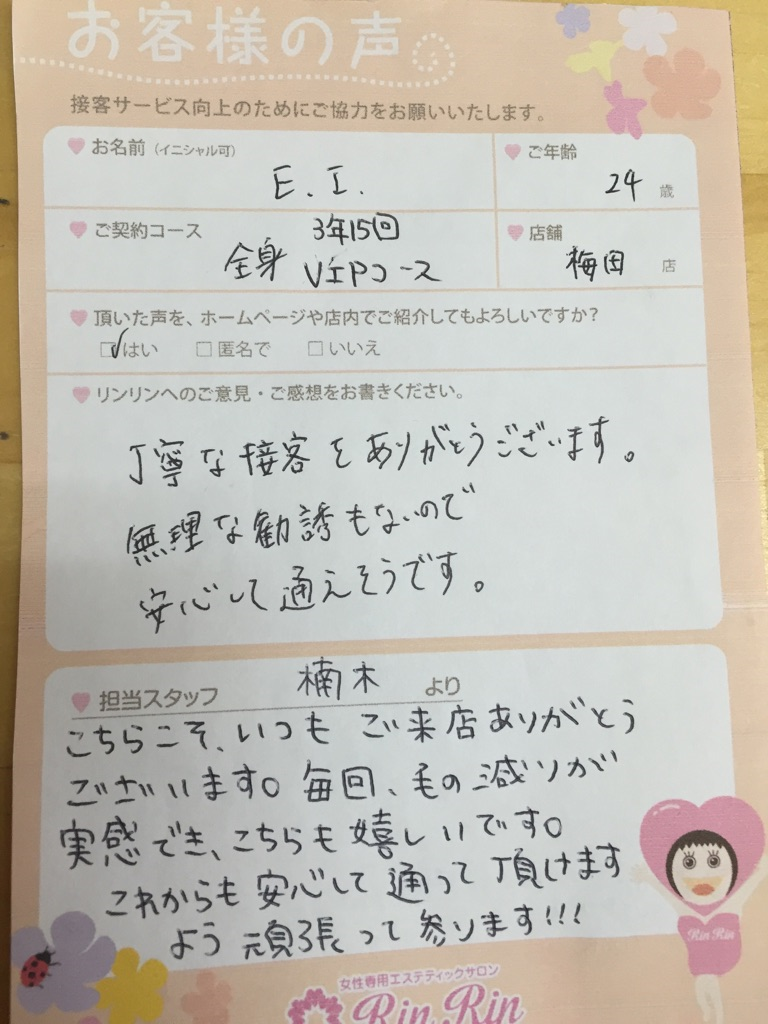 お客様の声
接客サービス向上のためにご協力をお願いいたします。
お名前（イニシャル可）
E.I.
ご年齢
24 歳
ご契約コース
3年15回
全身 VIPコース
店舗
梅田 店
頂いた声を、ホームページや店内でご紹介してもよろしいですか？
☑はい □匿名で □いいえ
リンリンへのご意見・ご感想をお書きください。
丁寧な接客をありがとうございます。
無理な勧誘もないので
安心して通えそうです。
担当スタッフ 楠木 より
こちらこそ、いつも ご来店ありがとう
ございます。毎回、毛の減りが
実感でき、こちらも嬉しいです。
これからも安心して通って頂けます
よう頑張って参ります!!!
Rin Rin
女性専用エステティックサロン
Rin Rin